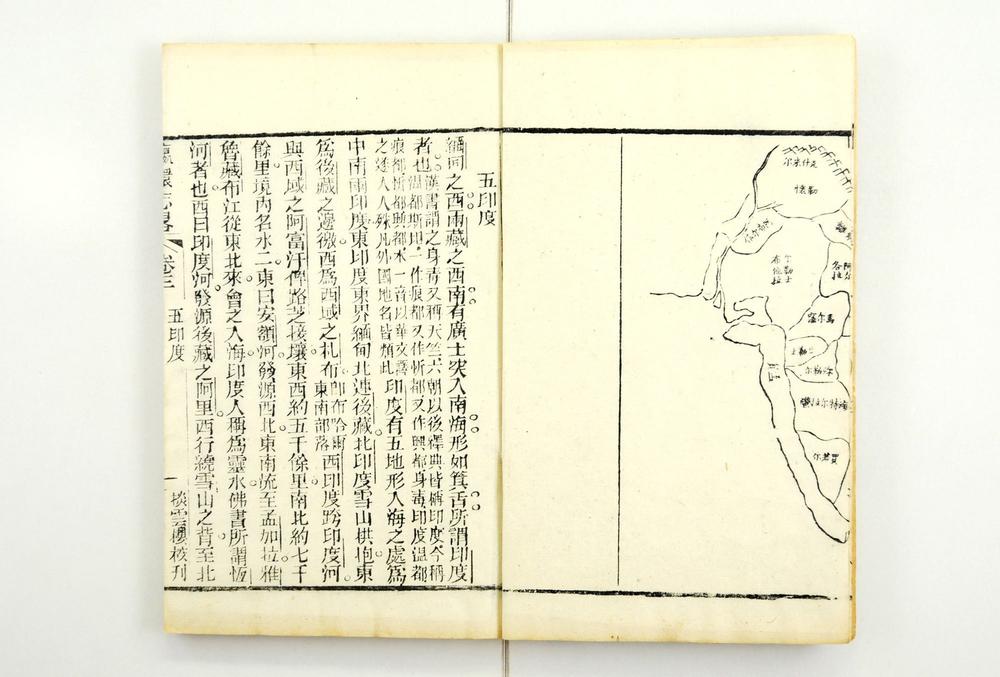 克什米尔
勒懷
馬尔窪
五印度
緬甸之西兩藏之西南有廣土突入南海形如箕舌所謂印度
者也漢書謂之身毒又稱天竺六朝以後釋典皆稱印度今稱
温都斯坦一作痕都又作忻都又作興都身毒印度温都
痕都忻都興都水一音以華文譯
之遂人人殊凡外國地名皆類此印度有五地形入海之處爲
中南兩印度東印度東界緬甸北連後藏北印度雪山拱抱東
爲後藏之邊徼西爲西域之札布卽布哈爾東南部落西印度跨印度河
與西域之阿富汗俾路芝接壤東西約五千餘里南北約七千
餘里境內名水二東曰安額河發源西北東南流至孟加拉雅
魯藏布江從東北來會之入海印度人稱爲靈水佛書所謂恆
河者也西曰印度河發源後藏之阿里西行繞雪山之背至北
瀛環志畧 卷三 五印度 一 掞雲樓校刊